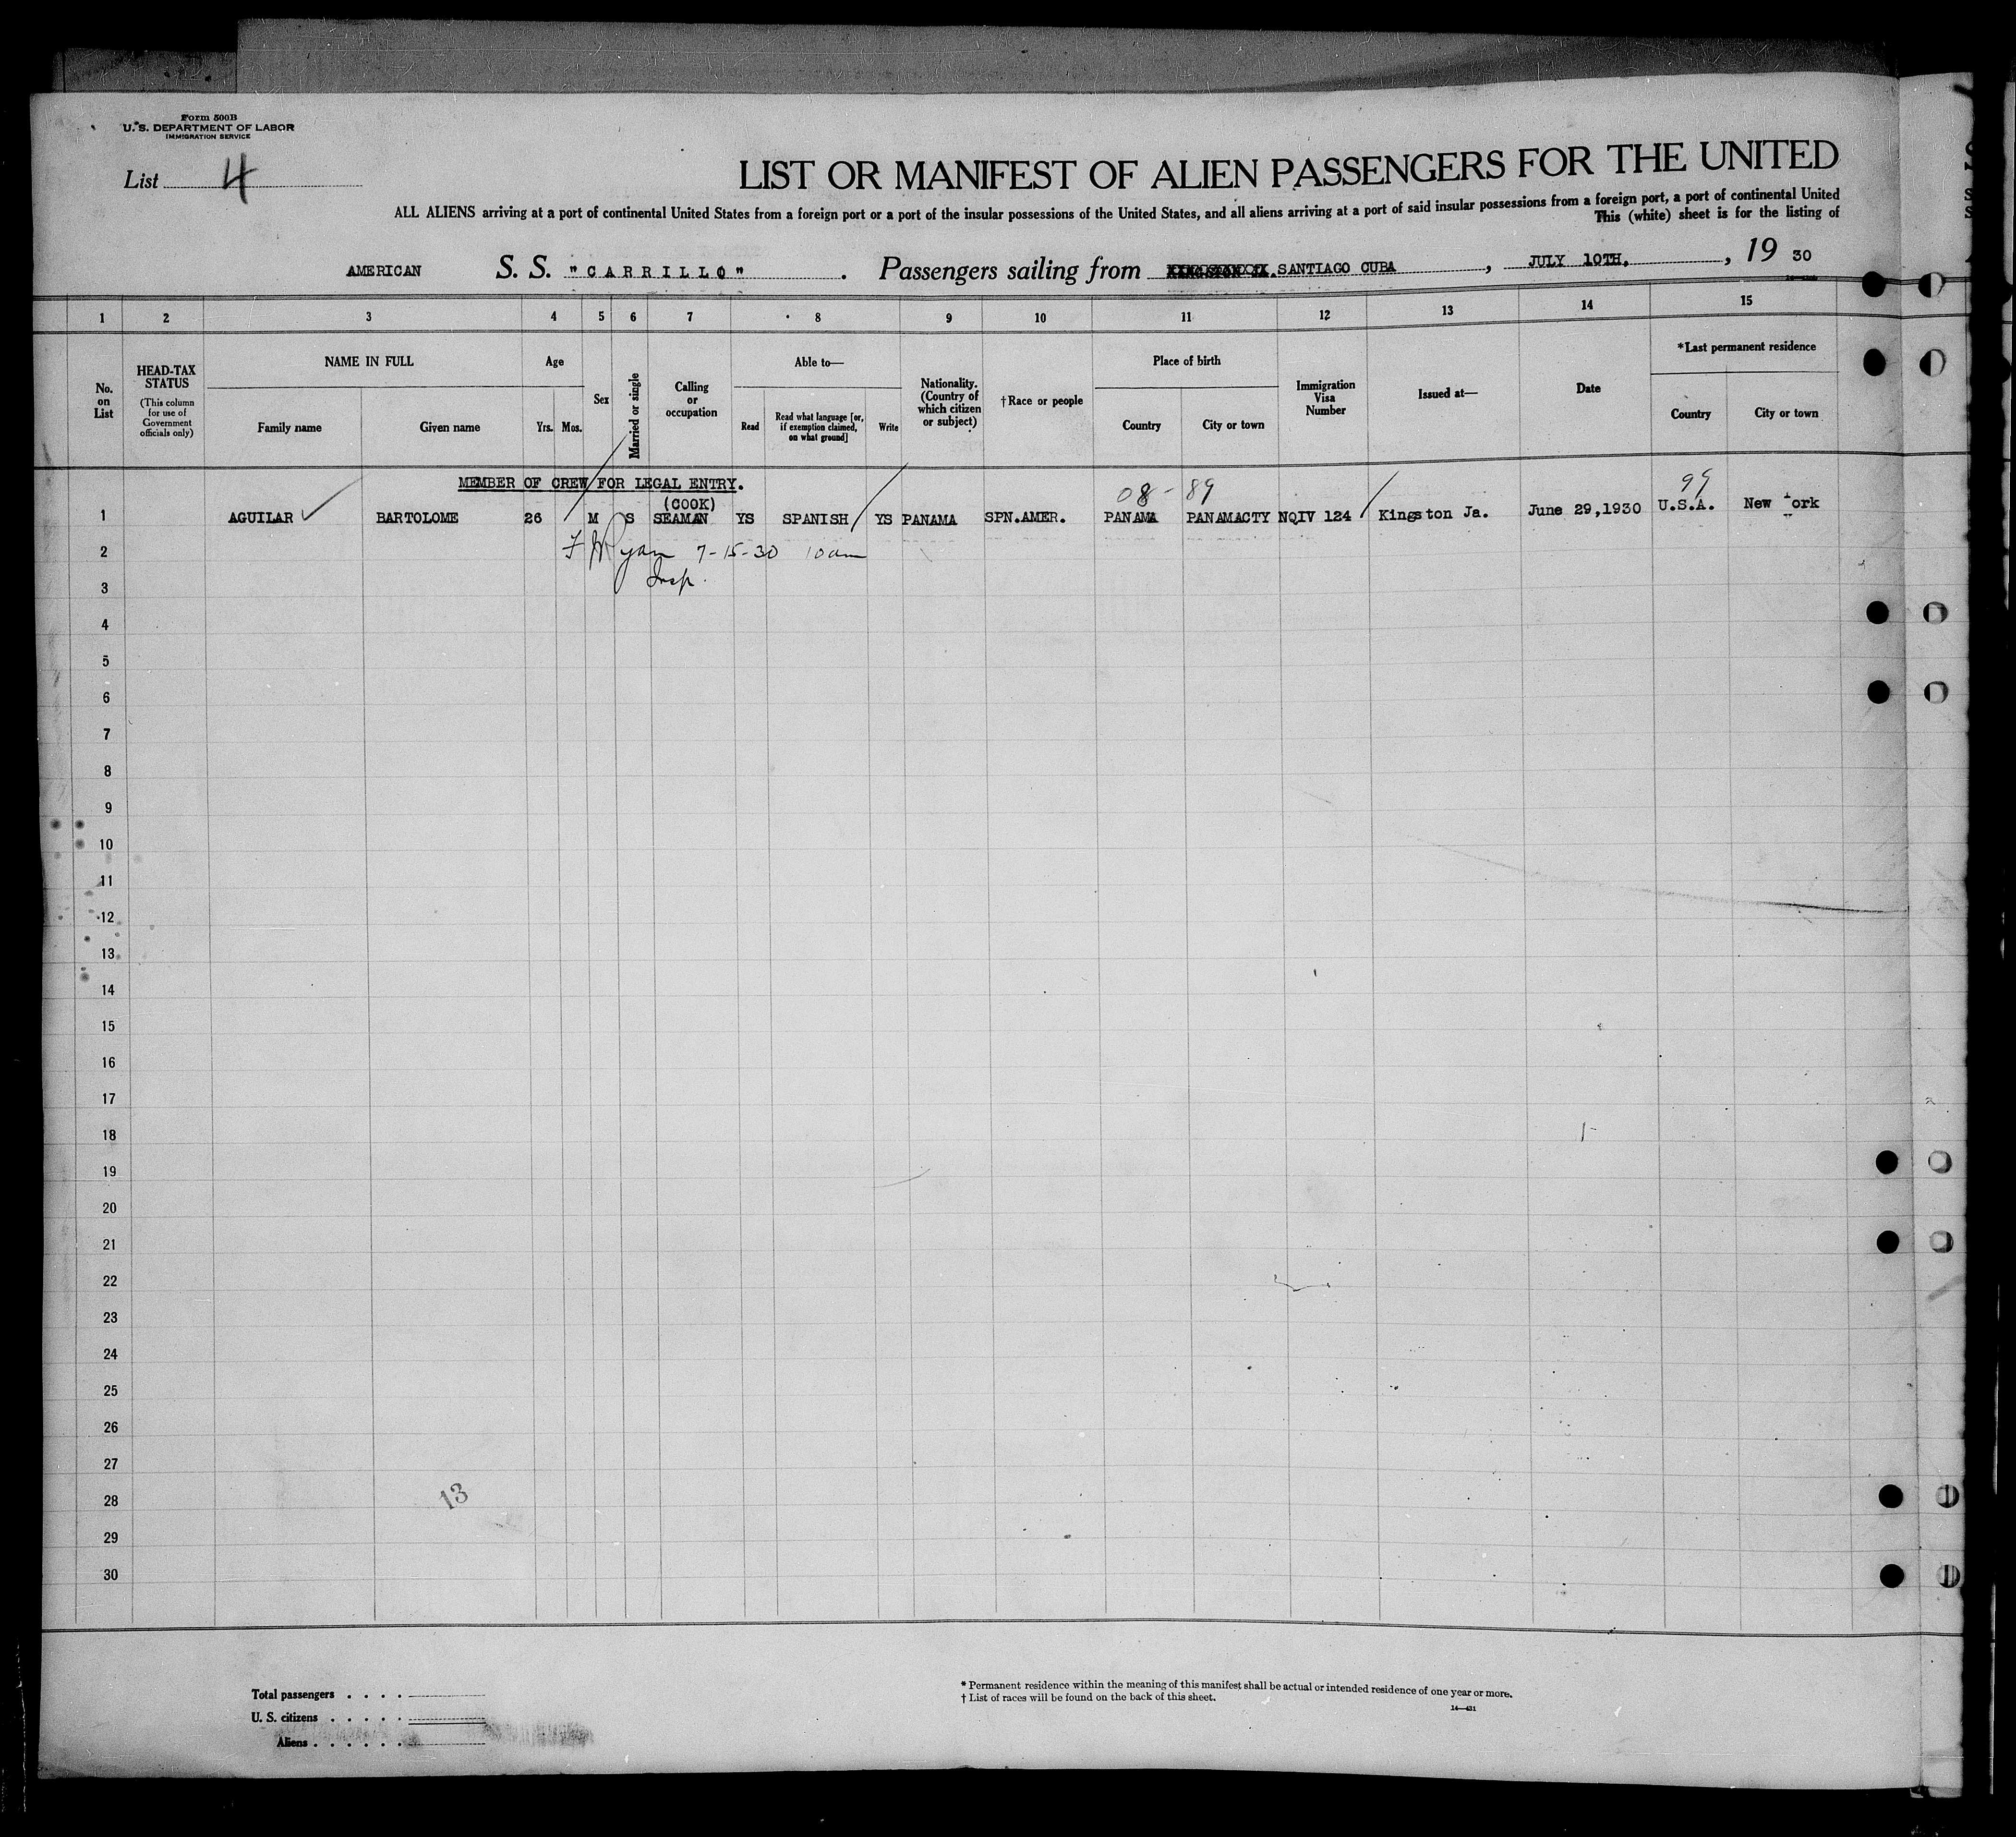 Form 500B
U. S. DEPARTMENT OF LABOR
IMMIGRATION SERVICE
List 4
LIST OR MANIFEST OF ALIEN PASSENGERS FOR THE UNITED
ALL ALIENS arriving at a port of continental United States from a foreign port or a port of the insular possessions of the United States, and all aliens arriving at a port of said insular possessions from a foreign port, a port of continental United
This (white) sheet is for the listing of
AMERICAN S. S. "CARRILLO" . Passengers sailing from SANTIAGO CUBA , JULY 10TH. , 19 30
1 2 3 4 5 6 7 8 9 10 11 12 13 14 15
No. on List
HEAD-TAX STATUS
(This column for use of Government officials only)
NAME IN FULL
Family name Given name
Age
Yrs. Mos.
Sex
Married or single
Calling or occupation
Able to—
Read
Read what language [or, if exemption claimed, on what ground]
Write
Nationality. (Country of which citizen or subject)
†Race or people
Place of birth
Country City or town
Immigration Visa Number
Issued at—
Date
*Last permanent residence
Country City or town
MEMBER OF CREW FOR LEGAL ENTRY.
(COOK)
08-89
99
1 AGUILAR BARTOLOME 26 M S SEAMAN YS SPANISH YS PANAMA SPN.AMER. PANAMA PANAMACTY NQIV 124 Kingston Ja. June 29,1930 U.S.A. New York
2 Ryan 7-15-30 10am
3 Insp.
4
5
6
7
8
9
10
11
12
13
14
15
16
17
18
19
20
21
22
23
24
25
26
27
28 13
29
30
Total passengers . . . .
U. S. citizens . . . . .
Aliens . . . . . .
* Permanent residence within the meaning of this manifest shall be actual or intended residence of one year or more.
† List of races will be found on the back of this sheet.
14—431